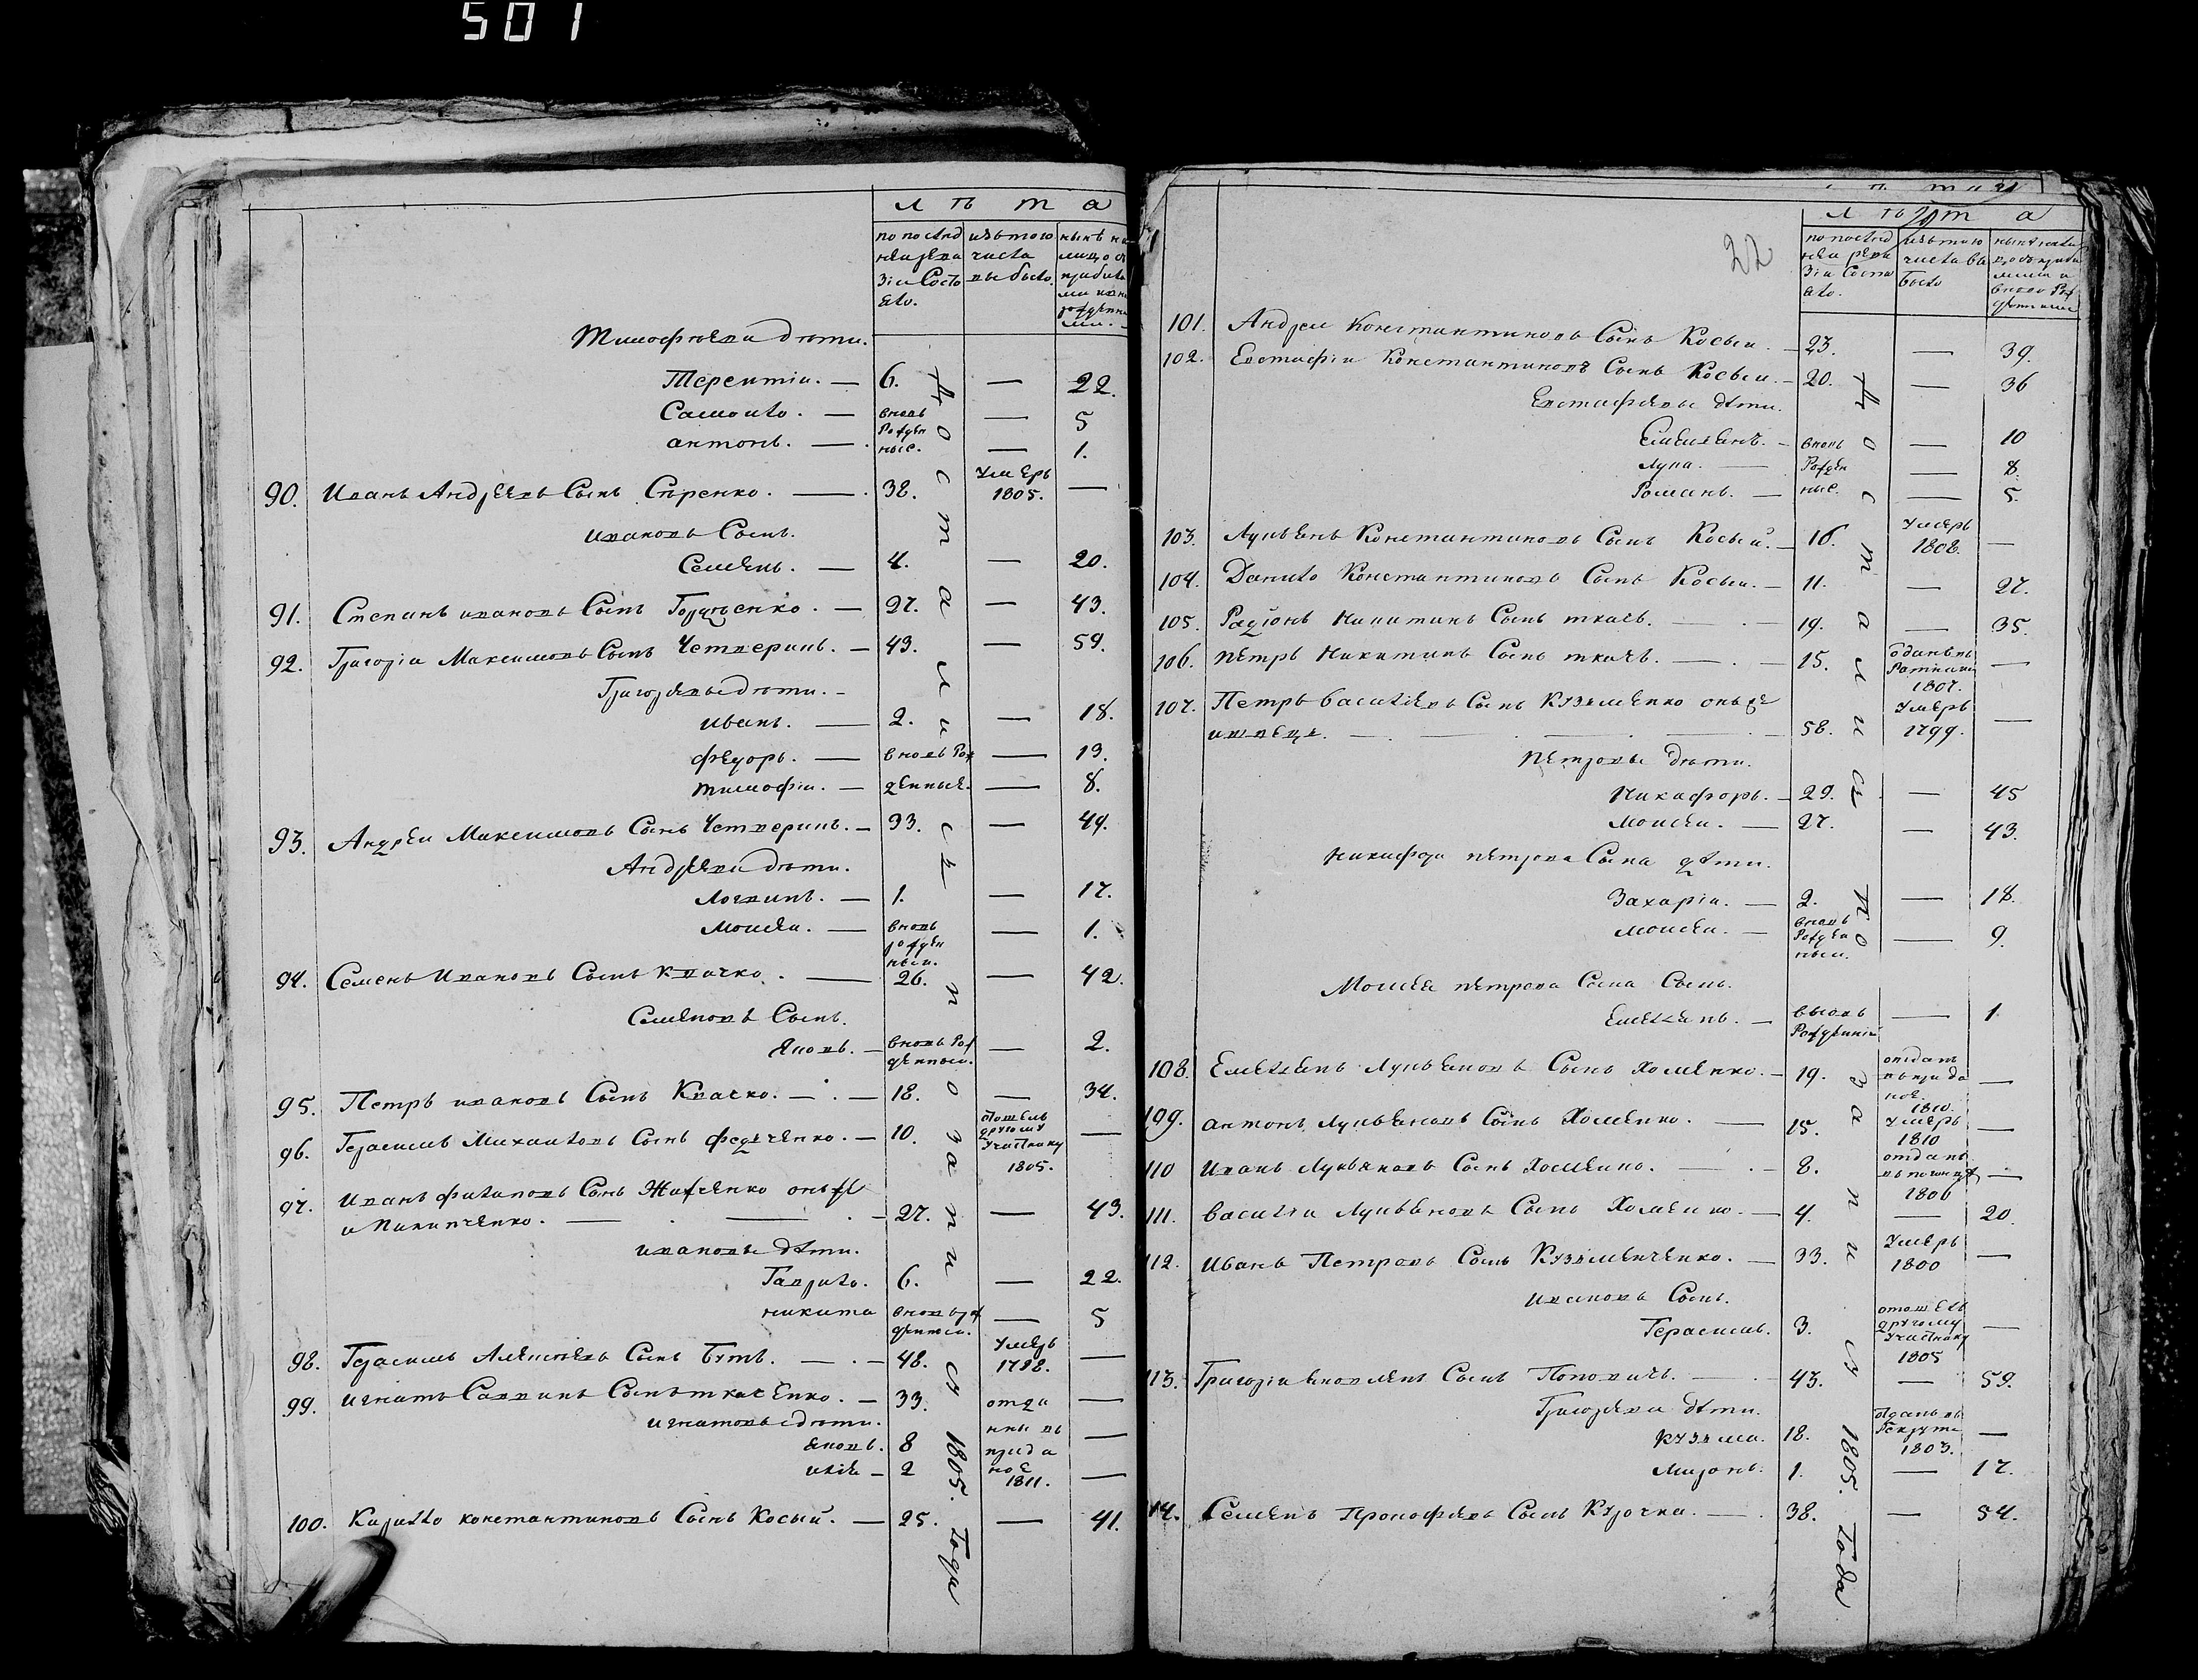 501
л ѣ т а
по послѣд изътого нынѣ на
ней реви числа лицо съ
зіи состо выбыло. прибыл
яло. ми и вно
рожденны
ми.
Тимофѣева дѣти.
Терентіи. — 6. — 22.
Самоило. — вновь — 5
антонъ. — рожден ные. — 1.
90. Иванъ Андреевъ Сынъ Сѣренко. — 38. Умеръ 1805. —
ивановъ Сынъ.
Семенъ. — 4. — 20.
91. Степанъ ивановъ Сынъ — 27. — 43.
92. Григоріи Максимовъ Сынъ Четверикъ. — 43. — 59.
Григорьевы дѣти. —
иванъ. — 2. — 18.
федоръ. — вновь рож — 13.
тимофіи. — денные. — 8.
93. Андреи Максимовъ Сынъ Четверикъ. — 33. — 49.
Андреева дѣти.
логвинъ. — 1. — 17.
моисеи. — вновь рожден ныи. — 1.
94. Семенъ Ивановъ Сынъ Квачко. — 26. — 42.
Семеновъ Сынъ.
яковъ. — вновь рож денныи. — 2.
95. Петръ ивановъ Сынъ Квачко. — 18. — 34.
96. Герасимъ Михаиловъ Сынъ федченко. — 10. Пошелъ другому участнику 1805. —
97. Иванъ филиповъ Сынъ онъ же
и Пилипченко. — 27. — 43.
ивановы дѣти.
Гаврило. 6. — 22.
никита вновь рож денныи. — 5
98. Герасимъ Алексѣевъ Сынъ Бутъ. — 48. Умеръ 1798. —
99. игнатъ Саввинъ Сынъ ткаченко. — 33. отда —
игнатовы дѣти. нны въ
яковъ. 8 прида —
илія — 2 ное 1811. —
100. Кирилло константиновъ Сынъ Косый. — 25. — 41.
Достались по записи 1805. Года
22
л ѣ т а
по послѣд изътого
ней реви числа вы
зіи состо было
яло.
101. Андреи Константиновъ Сынъ Косыи. — 23. — 39.
102. Евстафіи Константиновъ Сынъ Косыи. — 20. — 36
Евстафіевы дѣти.
Емельянъ. — вновь — 10
лука. — рожден — 8
Романъ. — ные. — 5.
103. Лукьянъ Константиновъ Сынъ Косый. — 16. Умеръ 1808. —
104. Данило Константиновъ Сынъ Косыи. — 11. — 27.
105. Радіонъ Никитинъ Сынъ ткачъ. — 19. — 35.
106. Петръ Никитинъ Сынъ ткачъ. — 15. Отданъ въ Ратники 1807. —
107. Петръ Василіевъ Сынъ Кузменко онъ же
ишвецъ. — 58. Умеръ 1799. —
Петровы дѣти.
Никифоръ. — 29. — 45
моисеи. — 27. — 43.
Никифора петрова Сына дѣти.
Захаріи. — 2. — 18.
моисеи. — вновь рожден ныи. — 9.
Моисея петрова Сына Сынъ.
Емельянъ. — вновь Рожденныи — 1
108. Емельянъ Лукьяновъ Сынъ Хоменко. — 19. отданъ въ прида ное 1810. —
109. антонъ Лукьяновъ Сынъ Хоменко. — 15. Умеръ 1810 —
110 Иванъ Лукьяновъ Сынъ Хоменко. — 8. отданъ 1806 —
111. Василіи Лукьяновъ Сынъ Хоменко. — 4. — 20.
112. Иванъ Петровъ Сынъ Кузьменченко. — 33. Умеръ 1800 —
Ивановъ Сынъ.
Герасимъ. 3. отошелъ другому участнику 1805 —
113. Григоріи яковлевъ Сынъ Поповичъ. — 43. — 59.
Григорьева дѣти.
кузьма. 18. отданъ въ Рекруты 1803. —
миронъ. 1. — 17.
114. Семенъ Прокофьевъ Сынъ Курочка. — 38. — 54.
Достались по записи 1805. Года